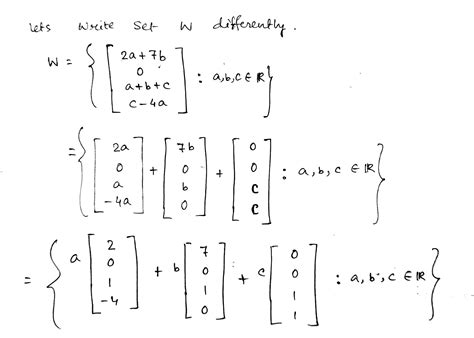 lets write set W differently.
W = { [ 2a+7b
0
a+b+c
c-4a ] : a,b,c ∈ ℝ }
= { [ 2a
0
a
-4a ] + [ 7b
0
b
0 ] + [ 0
0
c
c ] : a, b, c ∈ ℝ }
= { a [ 2
0
1
-4 ] + b [ 7
0
1
0 ] + c [ 0
0
1
1 ] : a, b, c ∈ ℝ }